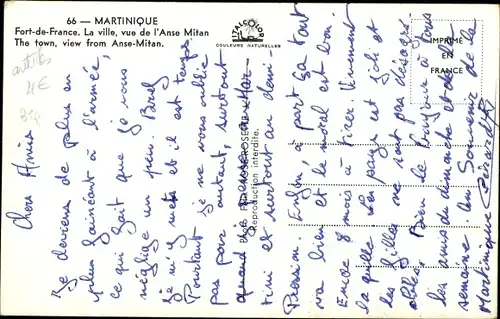 66 — MARTINIQUE
Fort-de-France. La ville, vue de l'Anse Mitan
The town, view from Anse-Mitan.
ITALCOLOR
COULEURS NATURELLES
IMPRIMÉ
EN
FRANCE
Antilles
4€
Reproduction interdite.
Chers Amis
Je deviens de plus en
plus fainéant à l'armée,
ce qui fait que je vous
néglige un peu. Bref
je m'y mets et il est temps.
Pourtant je ne vous oublie
pas pour autant, surtout
quand je pense au Mar-
tini et surtout au demi-
Pression. Enfin à part ça tout
va bien et le moral est bon.
Encore 8 mois à tirer. Vivement
la quille. Le pays est joli et
les filles ne sont pas désagré-
ables. Bien le bonjour à tous
les amis du dimanche et de la
semaine. Un Souvenir de la
Martinique